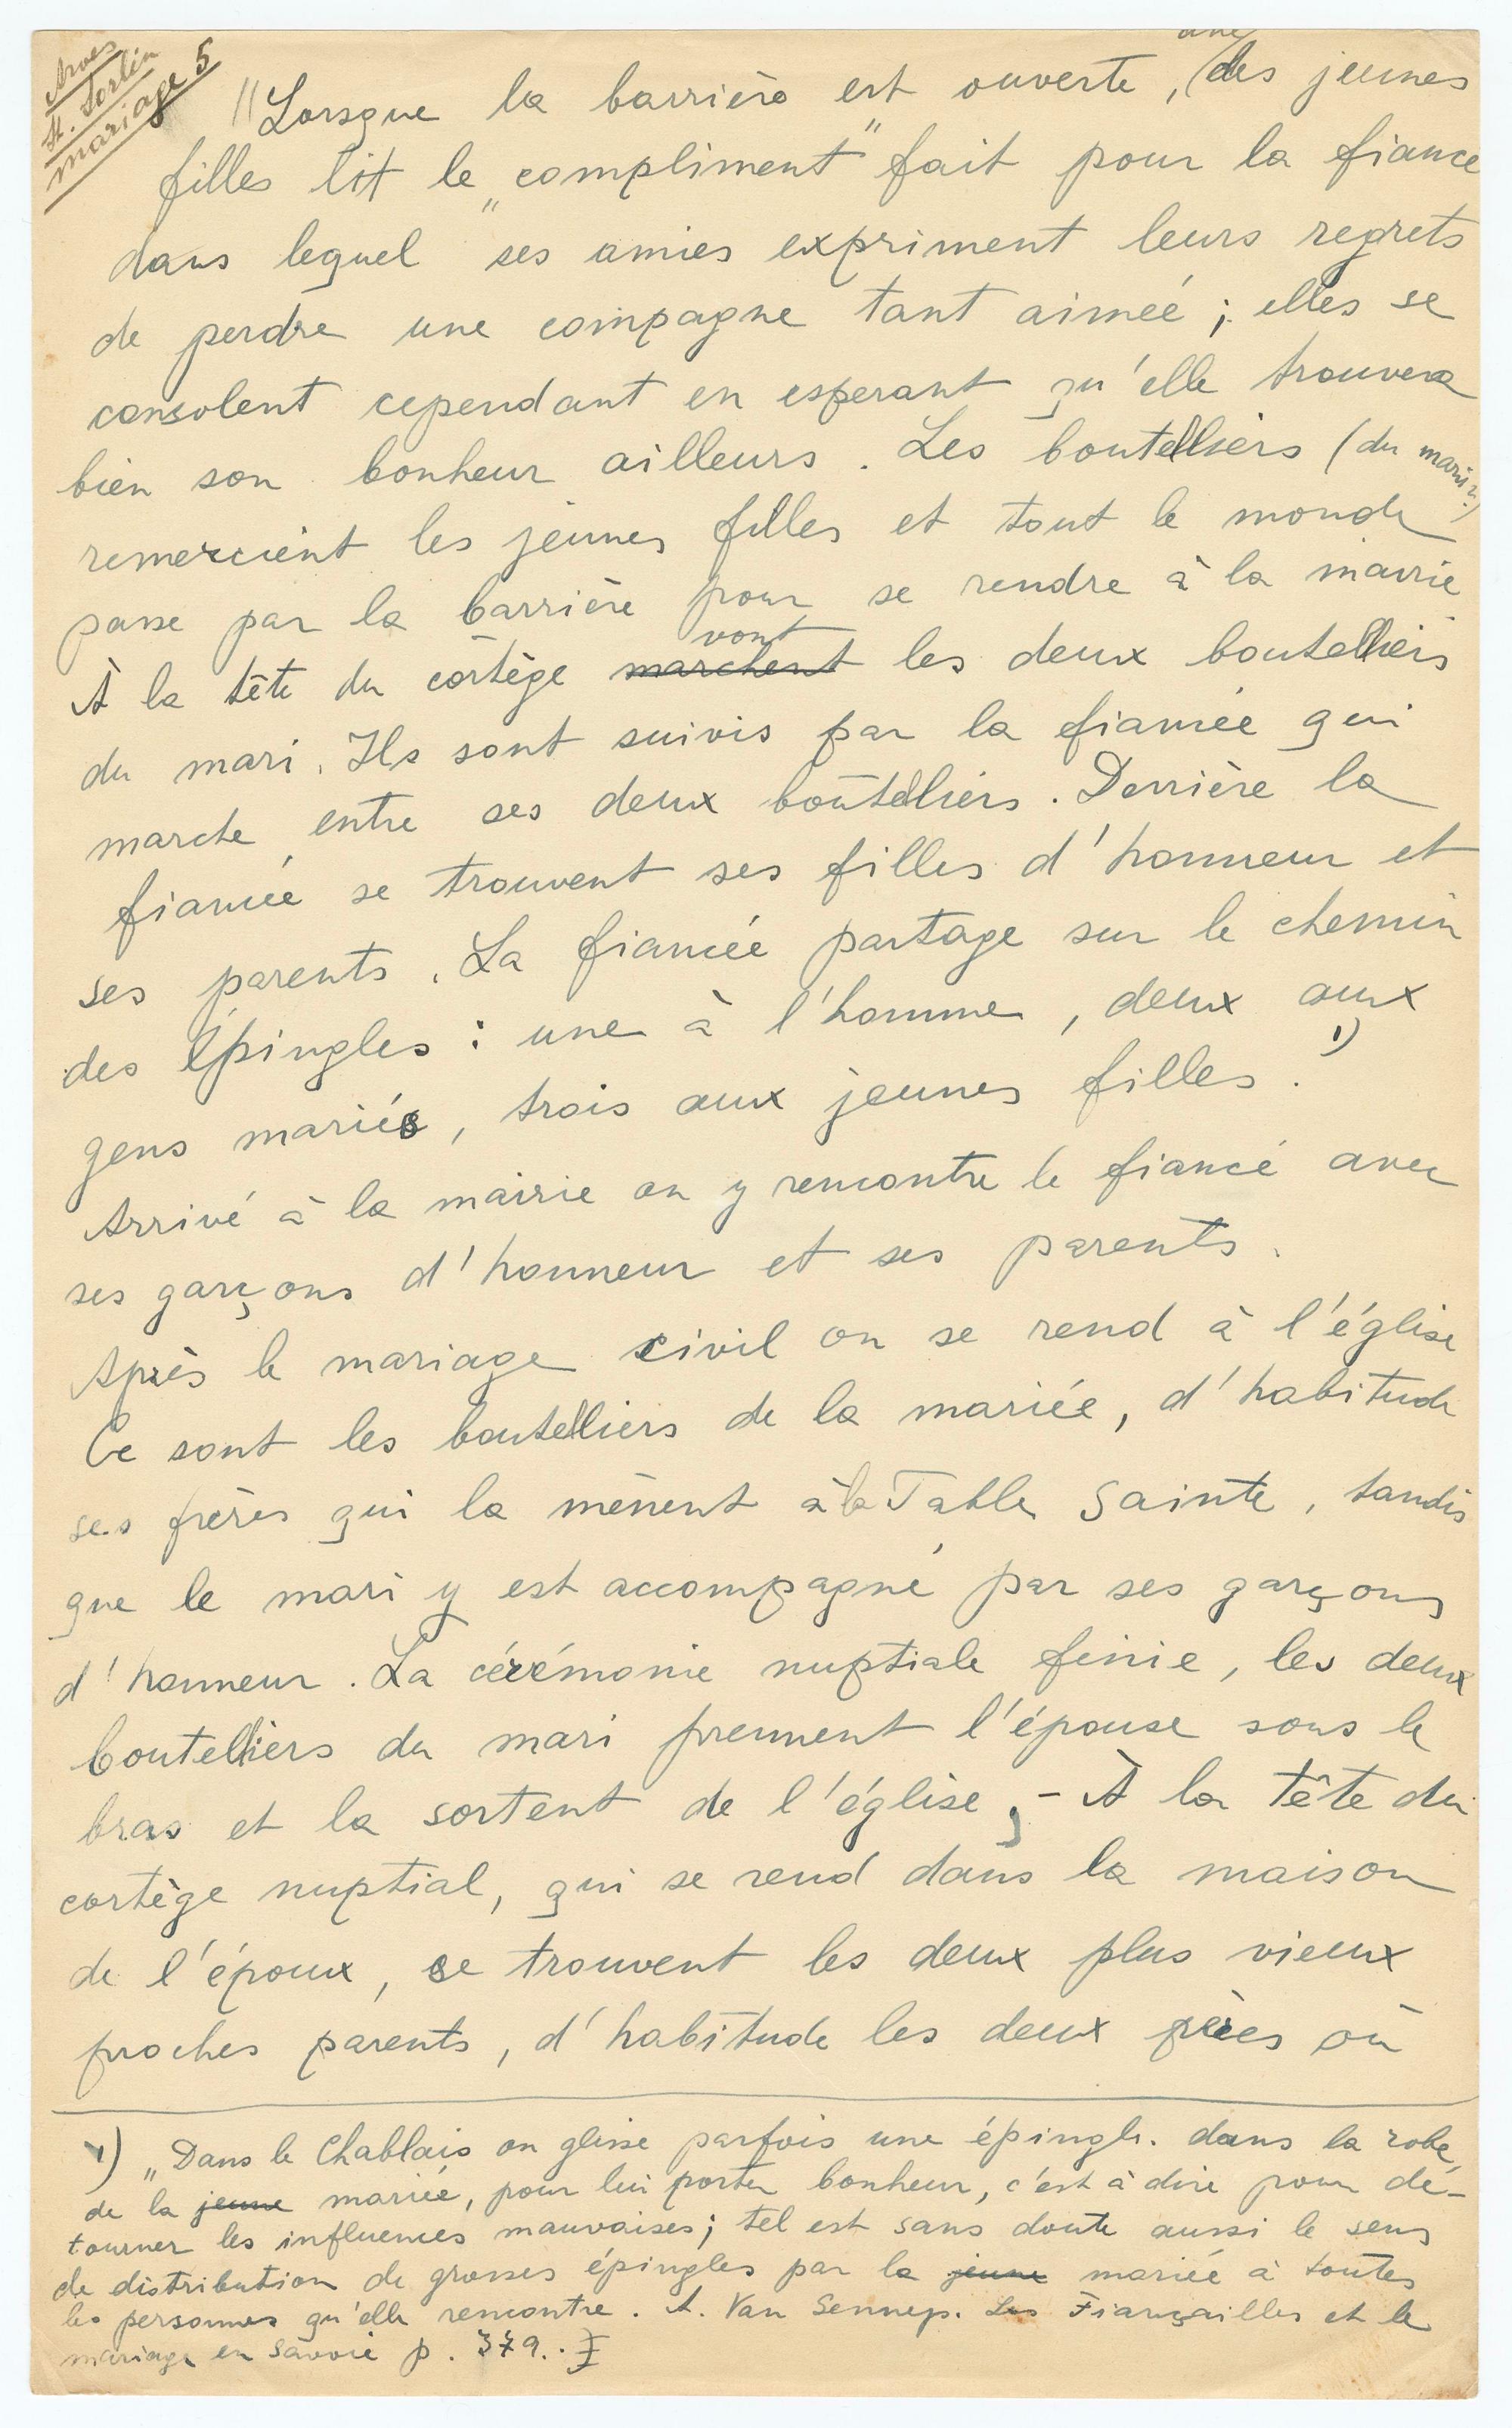 Arves
St. Sorlin
mariage 5
une
"Lorsque la barrière est ouverte, (des jeunes
filles lit le „compliment" fait pour la fiancé
dans lequel ses amies expriment leurs regrets
de perdre une compagne tant aimeé ; elles se
consolent cependant en esperant qu'elle trouvera
bien son bonheur ailleurs. Les boutelliers (du mari?)
remercient les jeunes filles et tout le monde
passe par la barrière pour se rendre à la mairie
vont
À la tête du cortège marchent les deux boutelliers
du mari. Ils sont suivis par la fiancée qui
marche entre ses deux boutelliers. Derrière la
fiancée se trouvent ses filles d'honneur et
ses parents. La fiancée partage sur le chemin
des épingles : une à l'homme, deux aux
gens mariés, trois aux jeunes filles. 1)
Arrivé à la mairie on y rencontre le fiancé avec
ses garçons d'honneur et ses parents.
Après le mariage civil on se rend à l'église
Ce sont les boutelliers de la mariée, d'habitude
ses frères qui la mènent à la Table Sainte, tandis
que le mari y est accompagné par ses garçons
d'honneur. La cérémonie nuptiale finie, les deux
boutelliers du mari prennent l'épouse sous le
bras et la sortent de l'église ; - À la tête du
cortège nuptial, qui se rend dans la maison
de l'époux, se trouvent les deux plus vieux
proches parents, d'habitude les deux pères où
1) „Dans le Chablais on glisse parfois une épingle. dans la robe
de la jeune mariée, pour lui porter bonheur, c'est à dire pour dé-
tourner les influences mauvaises; tel est sans doute aussi le sens
de distribution de grosses épingles par la jeune mariée à toutes
les personnes qu'elle rencontre. A. Van Sennep. Les Fiançailles et le
mariage en Savoie p. 379. . I